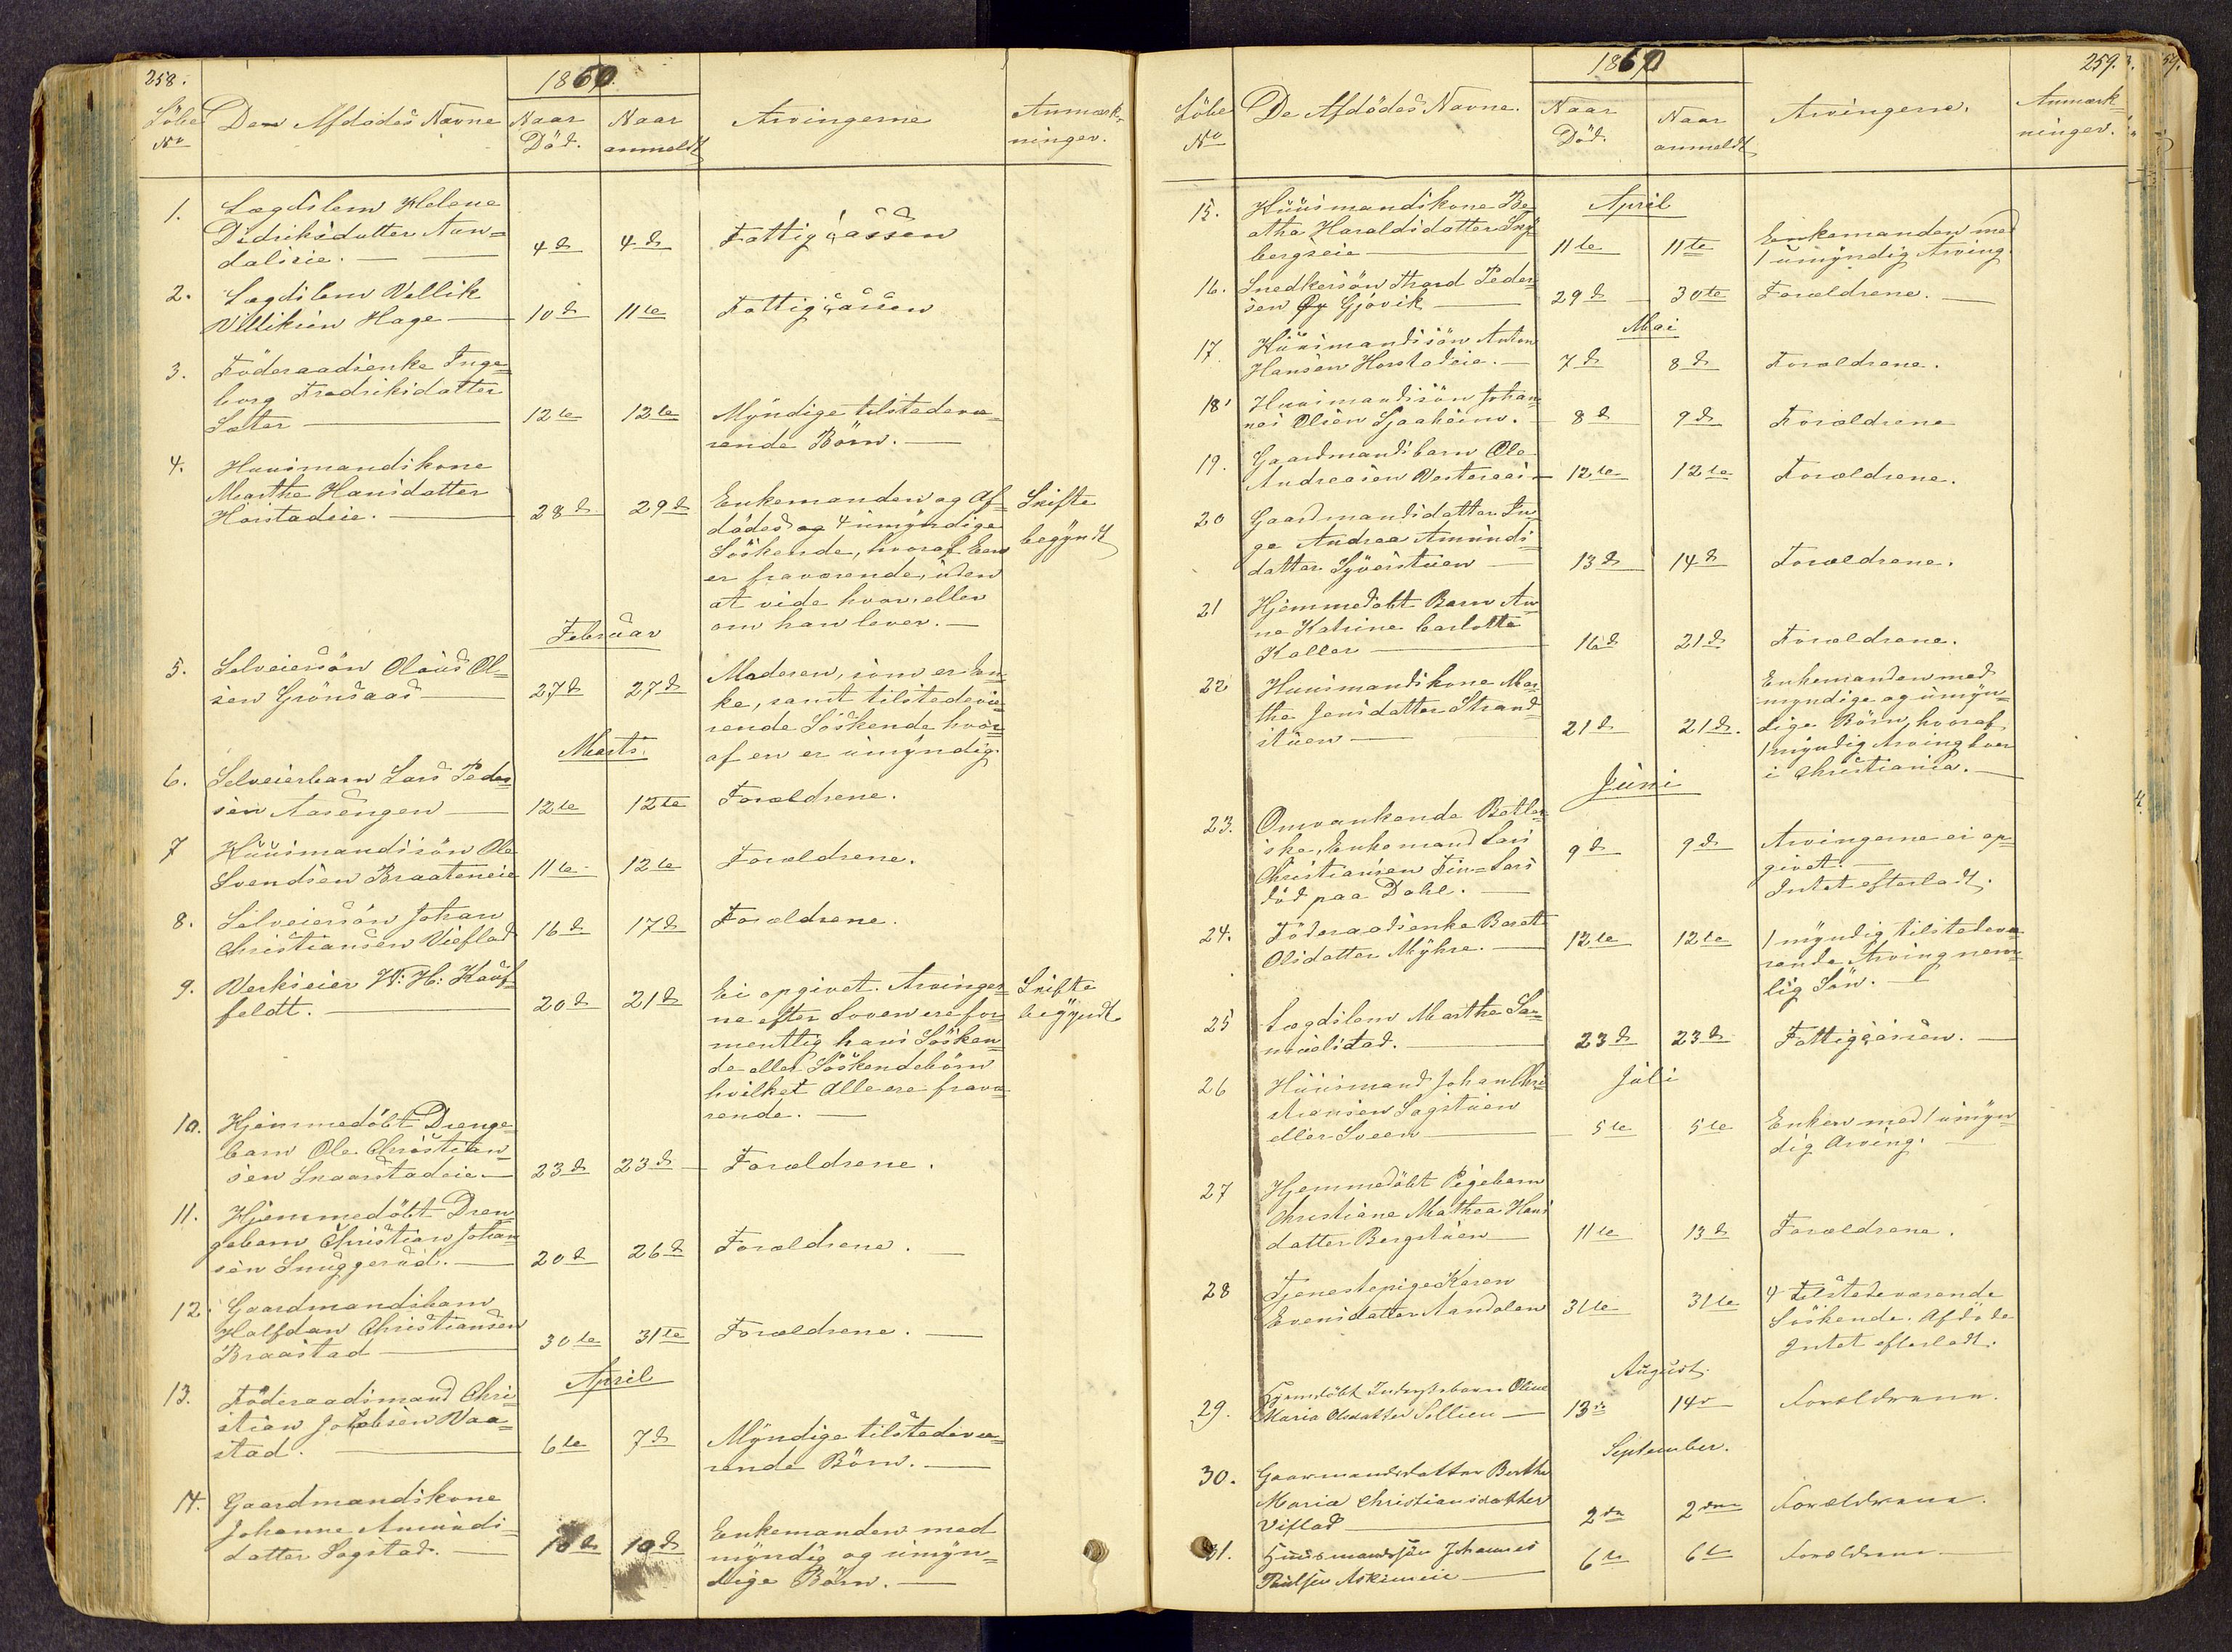 258.
1860.
Löbe No
Den Afdødes Navne
Naar Död.
Naar anmeldt
Arvingerne
Anmærk-
ninger.
1.
Lægdslem Helene
Didriksdatter Aan-
dalseie.
4de
4de
Fattigcassen
2.
Lægdslem Vellik
Villiksen Hage
10de
11te
Fattigcassen
3.
Föderaadsenke Inge-
borg Fredriksdatter
Sæter
12te
12te
Myndige tilstedevæ-
rende Börn.
4.
Huusmandskone
Marthe Hansdatter
Horstadeie.
28de
29de
Enkemanden og Af-
dödes og 4 umyndige
Söskende, hvoraf Een
er fraværende, uden
at vide hvor, eller
om han lever.
Skifte
begyndt
Februar
5.
Selveiersön Olaus Ol-
sen Grönsaas
27de
27de
Moderen, som er En-
ke, samt tilstedevæ-
rende Söskende hvor-
af en er umyndig.
Marts.
6.
Selveierbarn Lars Peder-
sen Aasengen
12te
12te
Forældrene.
7
Huusmandssön Ole
Svendsen Braateneie
11te
12te
Forældrene.
8.
Selveiersön Johan
Christiansen Vieflad
16de
17de
Forældrene.
9.
Verkseier W: H: Kauf-
feldt.
20de
21de
Ei opgivet. Arvinger-
ne efter Loven ere for-
mentlig hans Sösken-
de eller Söskendebörn
hvilket Alle ere fravæ-
rende.
Skifte
begyndt
10.
Hjemmedöbt Drenge-
barn Ole Christian-
sen Snaarstadeie
23de
23de
Forældrene.
11.
Hjemmedöbt Dren-
gebarn Christian Johan-
sen Snuggerud.
20de
26de
Forældrene.
12.
Gaardmandsbarn
Halfdan Christiansen
Braastad
30te
31te
Forældrene.
April
13.
Föderaadsmand Chri-
stian Jakobsen Vaa-
stad.
6te
7de
Myndige tilstedevæ-
rende Börn.
14.
Gaardmandskone
Johanne Amunds-
datter Sogstad.
18de
19de
Enkemanden med
myndig og umyn-
dige Börn.
259.
1860
Löbe No
De Afdödes Navne.
Naar Död.
Naar anmeldt
Arvingerne.
Anmærk-
ninger.
April
15.
Huusmandskone Be-
atha Haraldsdatter Eng-
bergseie
11te
11te
Enkemanden med
1 umyndig Arving.
16.
Snedkersön Thord Peder-
sen Gjövik
29de
30te
Forældrene.
Mai
17.
Huusmandssön Anton
Hansen Horstadeie.
7de
8de
Forældrene.
18.
Huusmandssön Johan-
nes Olsen Sjaaheim.
8de
9de
Forældrene
19.
Gaardmandsbarn Ole
Andreasen Vesteraas
12te
12te
Forældrene.
20
Gaardmandsdatter In-
ge Andrea Amunds-
datter Syverstuen
13de
14de
Forældrene.
21
Hjemmedöbt Barn An-
ne Katrine Carlotte
Koller
16de
21de
Forældrene.
22
Huusmandskone Mar-
the Jensdatter Strand-
stuen
21de
21de.
Enkemanden med
myndige og umyn-
dige Börn, hvoraf
1 myndig Arving boer
i Christiania.
Juni
23.
Omvankende Betler-
ske, Enkemand Lars
Christiansen Fin-Lars
död paa Dahl.
9de
9de
Arvingerne ei op-
givet.
Intet efterladt.
24.
Föderaadsenke Berette
Olsdatter Myhre.
12te
12te
1 myndig tilstedevæ-
rende Arving nem-
lig Sön.
25
Lægdslem Marthe Sa-
muelstad.
23de
23de
Fattigcassen.
Juli
26
Huusmand Johan Chri-
stiansen Sagstuen
eller Sveen
5te
5te
Enken med 1 umyn-
dig Arving.
27
Hjemmedöbt Pigebarn
Christiane Mathea Hans-
datter Bergstuen
11te
13de
Forældrene.
28
Tjenestepige Karen
Evensdatter Aandalen
31te
31te
4 tilstedeværende
Söskende. Afdöde
Intet efterladt.
August.
29.
Hjemdöbt Inderstbarn Oline
Maria Olsdatter Sollien
13de
14de
Forældrene.
September.
30.
Gaarmandsdatter Berthe
Maria Christiansdatter
Viflad
2den
2den
Forældrene.
31.
Huusmandssön Johannes
Paulsen Askimeie
6te
6te
Forældrene